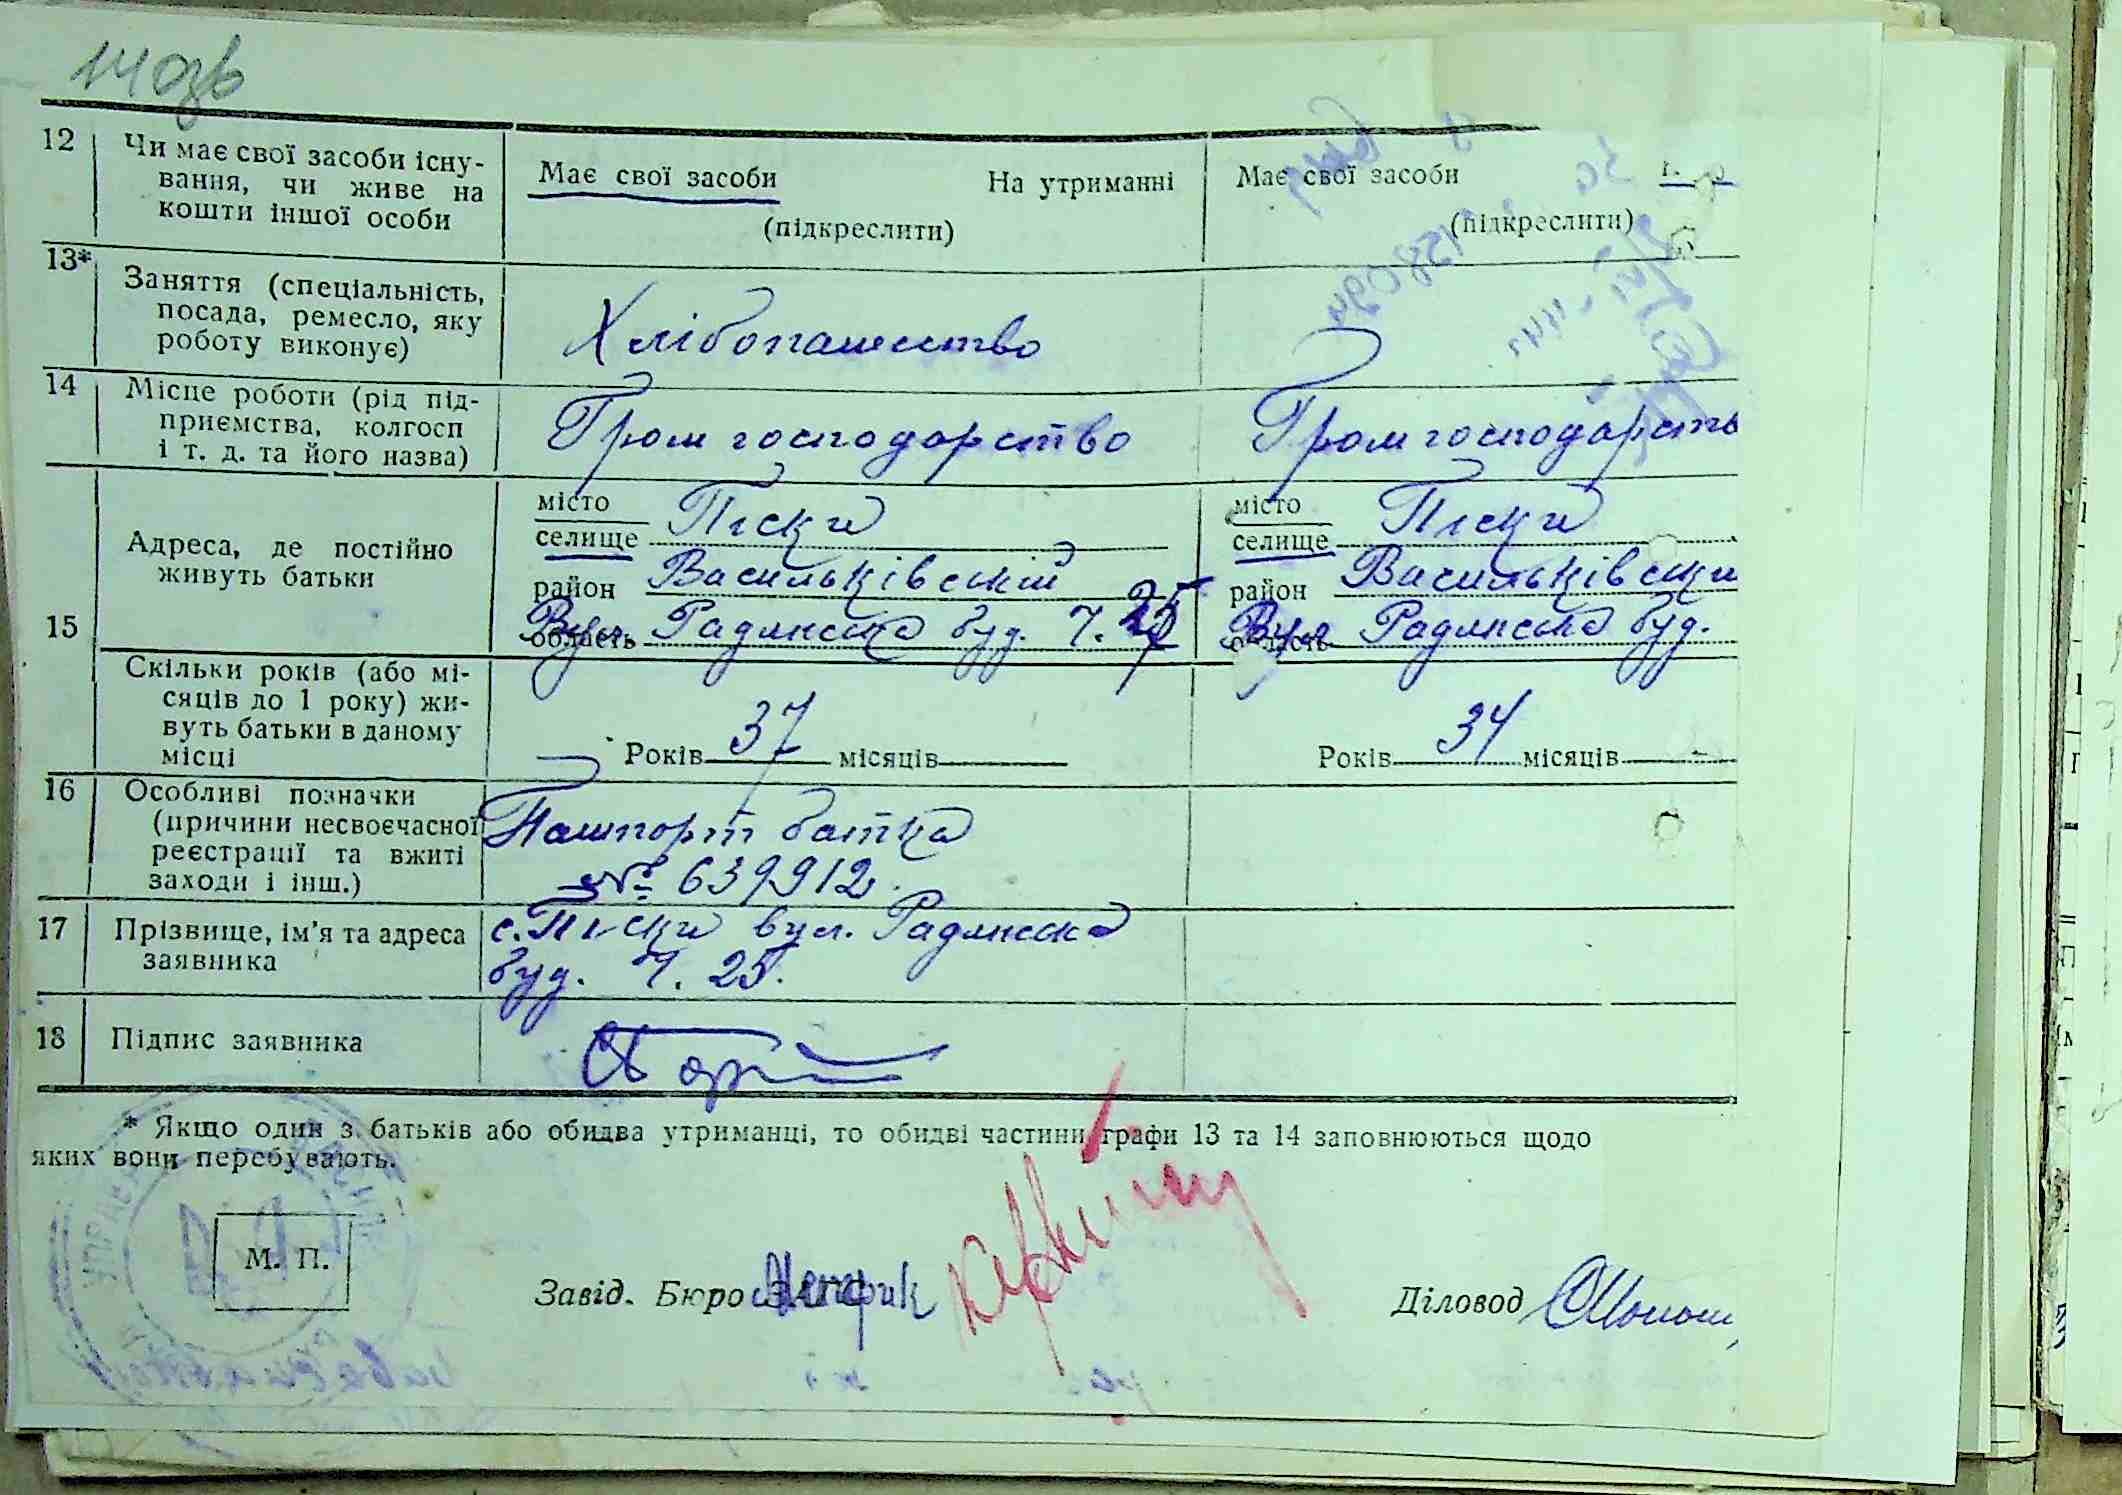 14 зв
12 Чи має свої засоби існу-
вання, чи живе на
кошти іншої особи
Має свої засоби На утриманні
(підкреслити)
Має свої засоби
(підкреслити)
13* Заняття (спеціальність,
посада, ремесло, яку
роботу виконує)
Хлібопашество
14 Місце роботи (рід під-
приємства, колгосп
і т. д. та його назва)
Гром господарство
Гром господарств
15 Адреса, де постійно
живуть батьки
місто
селище Піски
район Васильківский
область Вул Радянська буд. Ч. 25
місто
селище Піски
район Васильківски
область Вул Радянська буд.
Скільки років (або мі-
сяців до 1 року) жи-
вуть батьки в даному
місці
Років 37 місяців
Років 34 місяців
16 Особливі позначки
(причини несвоєчасної
реєстрації та вжиті
заходи і інш.)
Пашпорт батка
№ 639912.
17 Прізвище, ім'я та адреса
заявника
с. Піски вул. Радянська
буд. Ч. 25.
18 Підпис заявника
* Якщо один з батьків або обидва утриманці, то обидві частини графи 13 та 14 заповнюються щодо
яких вони перебувають.
М. П.
Завід. Бюро ЗАГС
Діловод